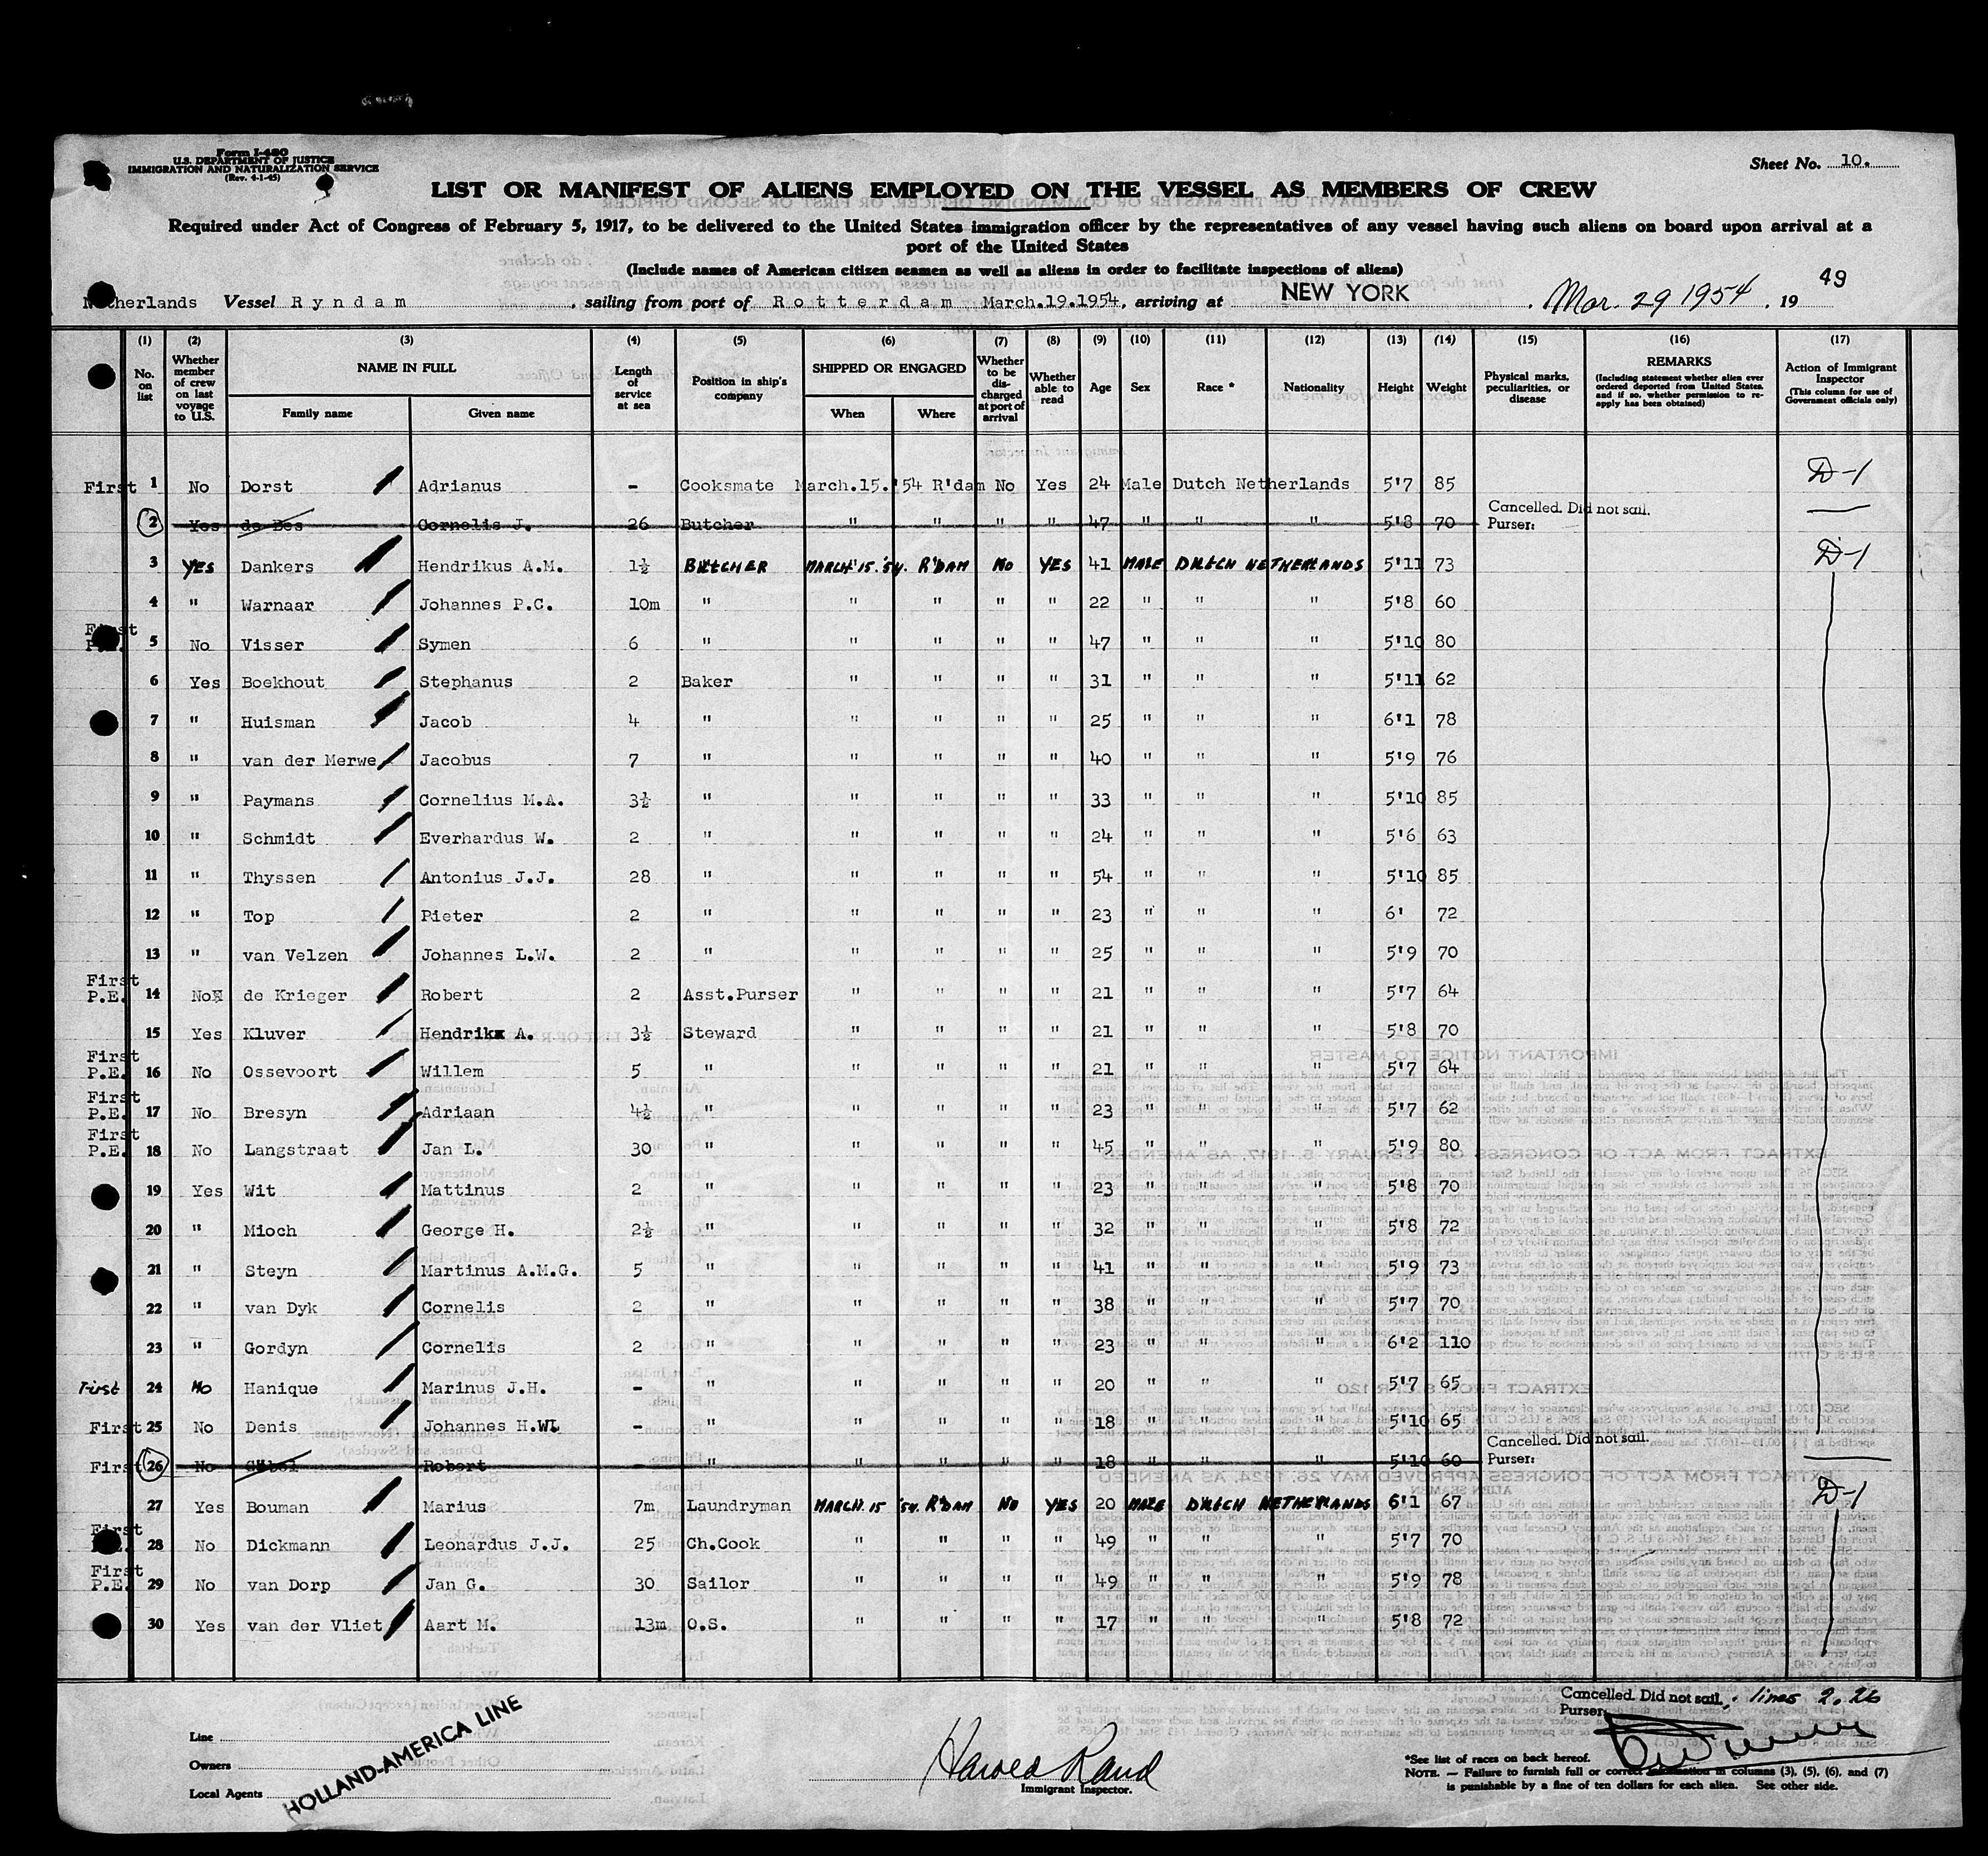 Form I-480
U.S. DEPARTMENT OF JUSTICE
IMMIGRATION AND NATURALIZATION SERVICE
(Rev. 4-1-45)
Sheet No. 10.
LIST OR MANIFEST OF ALIENS EMPLOYED ON THE VESSEL AS MEMBERS OF CREW
Required under Act of Congress of February 5, 1917, to be delivered to the United States immigration officer by the representatives of any vessel having such aliens on board upon arrival at a
port of the United States
(Include names of American citizen seamen as well as aliens in order to facilitate inspections of aliens)
49
Netherlands Vessel Ryndam, sailing from port of Rotterdam March.19.1954, arriving at NEW YORK. Mar. 29 1954, 19
(1) No. on list
(2) Whether member of crew on last voyage to U.S.
(3) NAME IN FULL Family name Given name
(4) Length of service at sea
(5) Position in ship's company
(6) SHIPPED OR ENGAGED When Where
(7) Whether to be discharged at port of arrival
(8) Whether able to read
(9) Age
(10) Sex
(11) Race *
(12) Nationality
(13) Height
(14) Weight
(15) Physical marks, peculiarities, or disease
(16) REMARKS (Including statement whether alien ever ordered deported from United States, and if so, whether permission to re-apply has been obtained)
(17) Action of Immigrant Inspector (This column for use of Government officials only)
First 1 No Dorst Adrianus - Cooksmate March.15.'54 R'dam No Yes 24 Male Dutch Netherlands 5'7 85 D-1
2 Yes de Bes Cornelis J. 26 Butcher " " " " 47 " " " 5'8 70 Cancelled. Did not sail. Purser:
3 YES Dankers Hendrikus A.M. 1½ BUTCHER MARCH'15.'54. R'DAM No YES 41 MALE DUTCH NETHERLANDS 5'11 73 D-1
4 " Warnaar Johannes P.C. 10m " " " " " 22 " " " 5'8 60
First P.E. 5 No Visser Symen 6 " " " " " 47 " " " 5'10 80
6 Yes Boekhout Stephanus 2 Baker " " " " 31 " " " 5'11 62
7 " Huisman Jacob 4 " " " " " 25 " " " 6'1 78
8 " van der Merwe Jacobus 7 " " " " " 40 " " " 5'9 76
9 " Paymans Cornelius M.A. 3½ " " " " " 33 " " " 5'10 85
10 " Schmidt Everhardus W. 2 " " " " " 24 " " " 5'6 63
11 " Thyssen Antonius J.J. 28 " " " " " 54 " " " 5'10 85
12 " Top Pieter 2 " " " " " 23 " " " 6' 72
13 " van Velzen Johannes L.W. 2 " " " " " 25 " " " 5'9 70
First P.E. 14 No de Krieger Robert 2 Asst.Purser " " " " 21 " " " 5'7 64
15 Yes Kluver Hendrikx A. 3½ Steward " " " " 21 " " " 5'8 70
First P.E. 16 No Ossevoort Willem 5 " " " " " 21 " " " 5'7 64
First P.E. 17 No Bresyn Adriaan 4½ " " " " " 23 " " " 5'7 62
First P.E. 18 No Langstraat Jan L. 30 " " " " " 45 " " " 5'9 80
19 Yes Wit Mattinus 2 " " " " " 23 " " " 5'8 70
20 " Mioch George H. 2½ " " " " " 32 " " " 5'8 72
21 " Steyn Martinus A.M.G. 5 " " " " " 41 " " " 5'9 73
22 " van Dyk Cornelis 2 " " " " " 38 " " " 5'7 70
23 " Gordyn Cornelis 2 " " " " " 23 " " " 6'2 110
First 24 No Hanique Marinus J.H. - " " " " " 20 " " " 5'7 65
First 25 No Denis Johannes H.W. - " " " " " 18 " " " 5'10 65
First 26 No Robert - " " " " " 18 " " " 5'10 60 Cancelled. Did not sail. Purser:
27 Yes Bouman Marius 7m Laundryman MARCH.15 '54. R'DAM No YES 20 MALE DUTCH NETHERLANDS 6'1 67 D-1
First 28 No Dickmann Leonardus J.J. 25 Ch.Cook " " " " 49 " " " 5'7 70
First P.E. 29 No van Dorp Jan G. 30 Sailor " " " " 49 " " " 5'9 78
30 Yes van der Vliet Aart M. 13m O.S. " " " " 17 " " " 5'8 72
Cancelled. Did not sail. lines 2. 26
Purser:
Line
Owners
Local Agents
HOLLAND-AMERICA LINE
Harold Rand
Immigrant Inspector.
*See list of races on back hereof.
NOTE. — Failure to furnish full or correct information in columns (3), (5), (6), and (7)
is punishable by a fine of ten dollars for each alien. See other side.